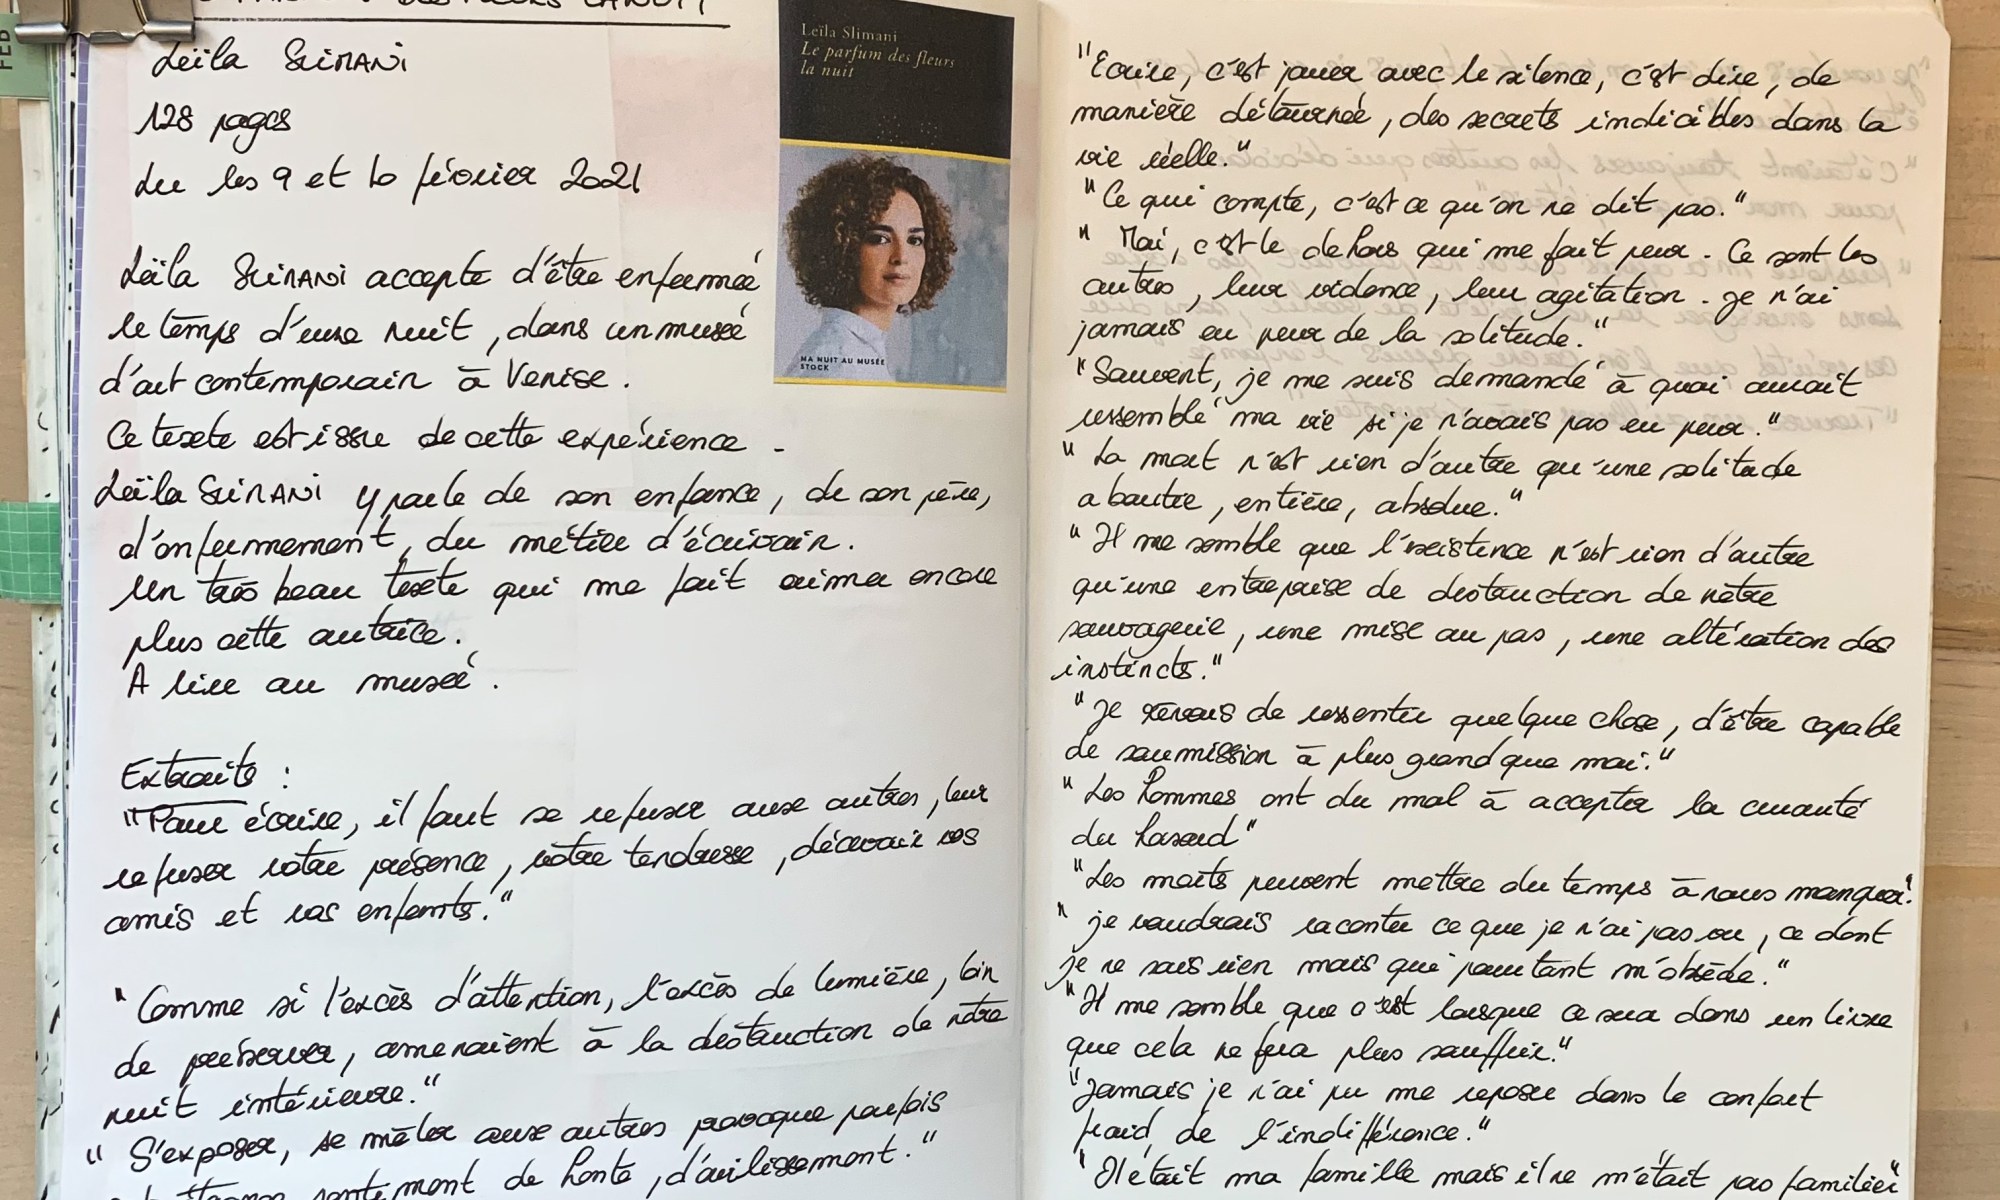 DES FLEURS LA NUIT
Leïla SLIMANI
128 pages
Lu les 9 et 10 février 2021
Leïla SLIMANI accepte d'être enfermée
le temps d'une nuit, dans un musée
d'art contemporain à Venise.
Ce texte est issu de cette expérience.
Leïla SLIMANI y parle de son enfance, de son père,
d'enfermement, du métier d'écrivain.
Un très beau texte qui me fait aimer encore
plus cette autrice.
A lire au musée.
Extraits :
"Pour écrire, il faut se refuser aux autres, leur
refuser votre présence, votre tendresse, décevoir vos
amis et vos enfants."
"Comme si l'excès d'attention, l'excès de lumière, loin
de préserver, amenaient à la destruction de notre
nuit intérieure."
"S'exposer, se mêler aux autres provoque parfois
sentiment de honte, d'avilissement."
FEB
Leïla Slimani
Le parfum des fleurs
la nuit
MA NUIT AU MUSÉE
STOCK
"Ecrire, c'est jouer avec le silence, c'est dire, de
manière détournée, des secrets indicibles dans la
vie réelle."
"Ce qui compte, c'est ce qu'on ne dit pas."
"Moi, c'est le dehors qui me fait peur. Ce sont les
autres, leur violence, leur agitation. Je n'ai
jamais eu peur de la solitude."
"Souvent, je me suis demandé à quoi aurait
ressemblé ma vie si je n'avais pas eu peur."
"La mort n'est rien d'autre qu'une solitude
aboutie, entière, absolue."
"Il me semble que l'existence n'est rien d'autre
qu'une entreprise de destruction de notre
sauvagerie, une mise au pas, une altération des
instincts."
"Je rêvais de ressentir quelque chose, d'être capable
de soumission à plus grand que moi."
"Les hommes ont du mal à accepter la cruauté
du hasard"
"Les morts peuvent mettre du temps à nous manquer."
"Je voudrais raconter ce que je n'ai pas vu, ce dont
je ne sais rien mais qui pourtant m'obsède."
"Il me semble que c'est lorsque ce sera dans un livre
que cela ne fera plus souffrir."
"Jamais je n'ai pu me reposer dans le confort
froid, de l'indifférence."
"Il était ma famille mais il ne m'était pas familier"